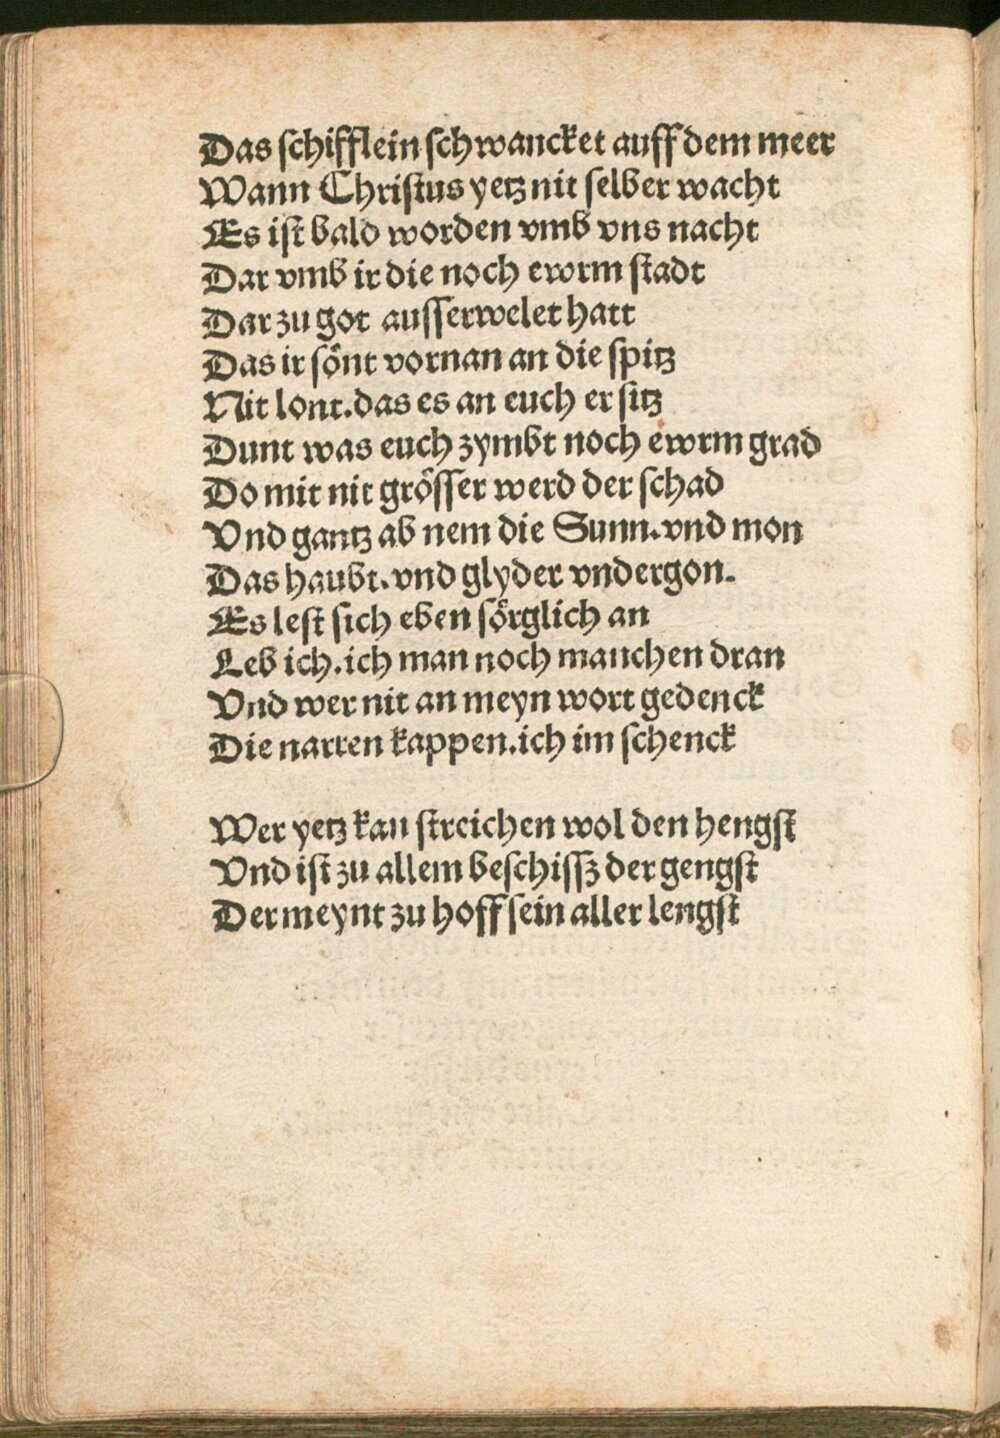 Das schifflein schwancket auff dem meer
Wann Christus yetz nit selber wacht
Es ist bald worden vmb vns nacht
Dar vmb ir die noch ewrm stadt
Dar zu got ausserwelet hatt
Das ir sönt vornan an die spitz
Nit lont. das es an euch er sitz
Dunt was euch zymbt noch ewrm grad
Do mit nit grösser werd der schad
Vnd gantz ab nem die Sunn. vnd mon
Das haubt. vnd glyder vndergon.
Es lest sich eben sörglich an
Leb ich. ich man noch manchen dran
Vnd wer nit an meyn wort gedenck
Die narren kappen. ich im schenck
Wer yetz kan streichen wol den hengst
Vnd ist zu allem beschissz der gengst
Der meynt zu hoff sein aller lengst